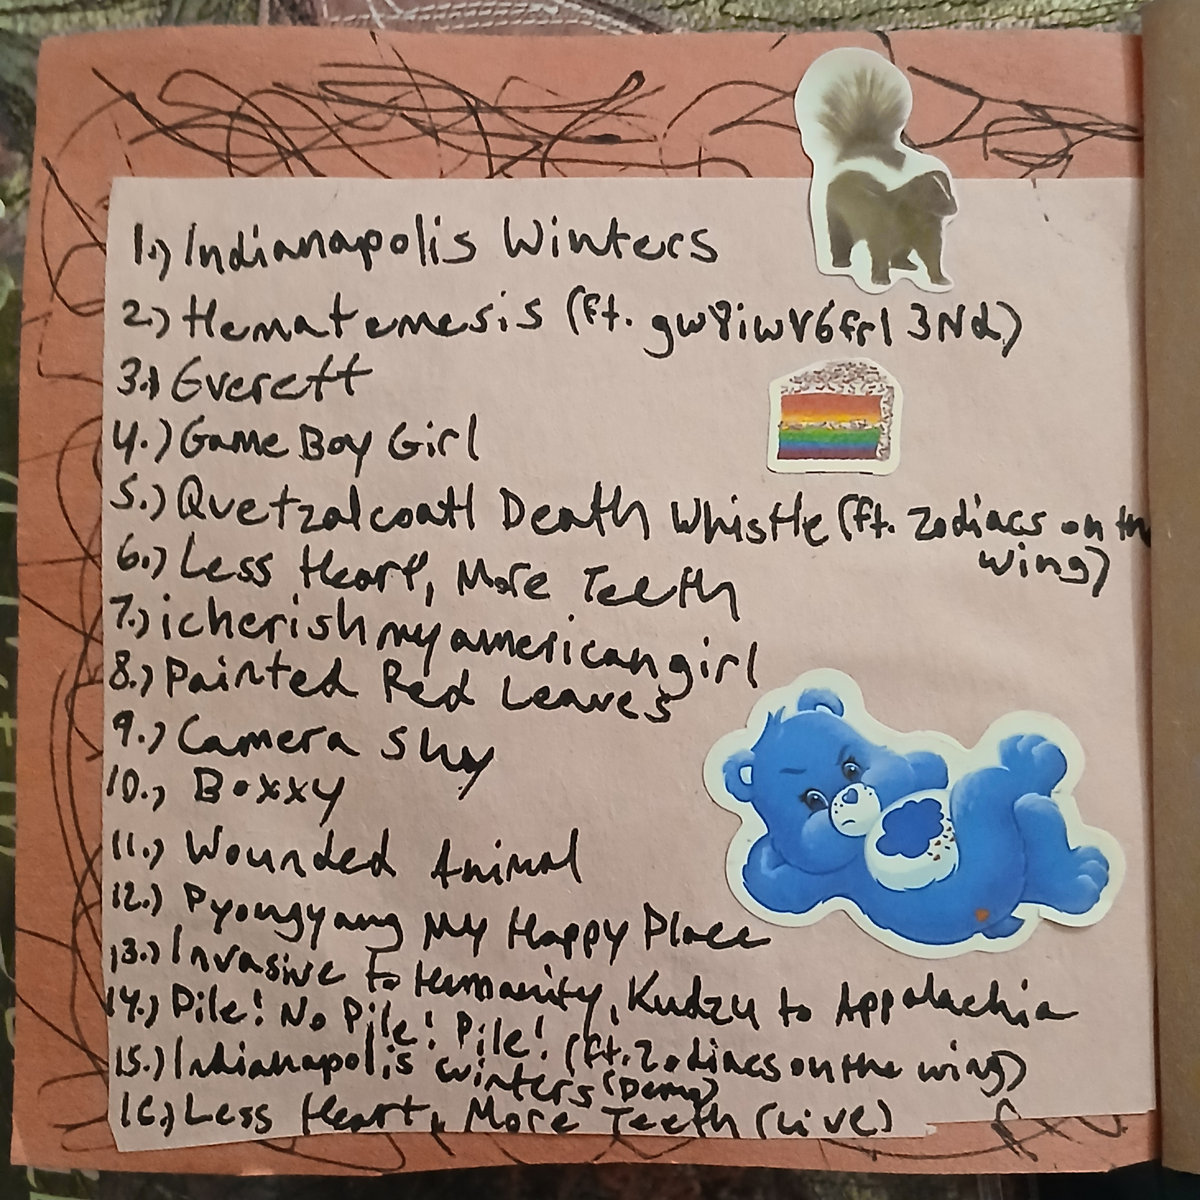 1.) Indianapolis Winters
2.) Hematemesis (ft. gw8iwV6frl3Nd)
3.) Everett
4.) Game Boy Girl
5.) Quetzalcoatl Death Whistle (ft. zodiacs on the
wing)
6.) Less Heart, More Teeth
7.) icherishmyamericangirl
8.) Painted Red Leaves
9.) Camera Shy
10.) Boxxy
11.) Wounded Animal
12.) Pyongyang My Happy Place
13.) Invasive to Humanity, Kudzu to Appalachia
14.) Pile! No Pile! Pile! (ft. Zodiacs on the wing)
15.) Indianapolis Winters (Demo)
16.) Less Heart, More Teeth (Live)